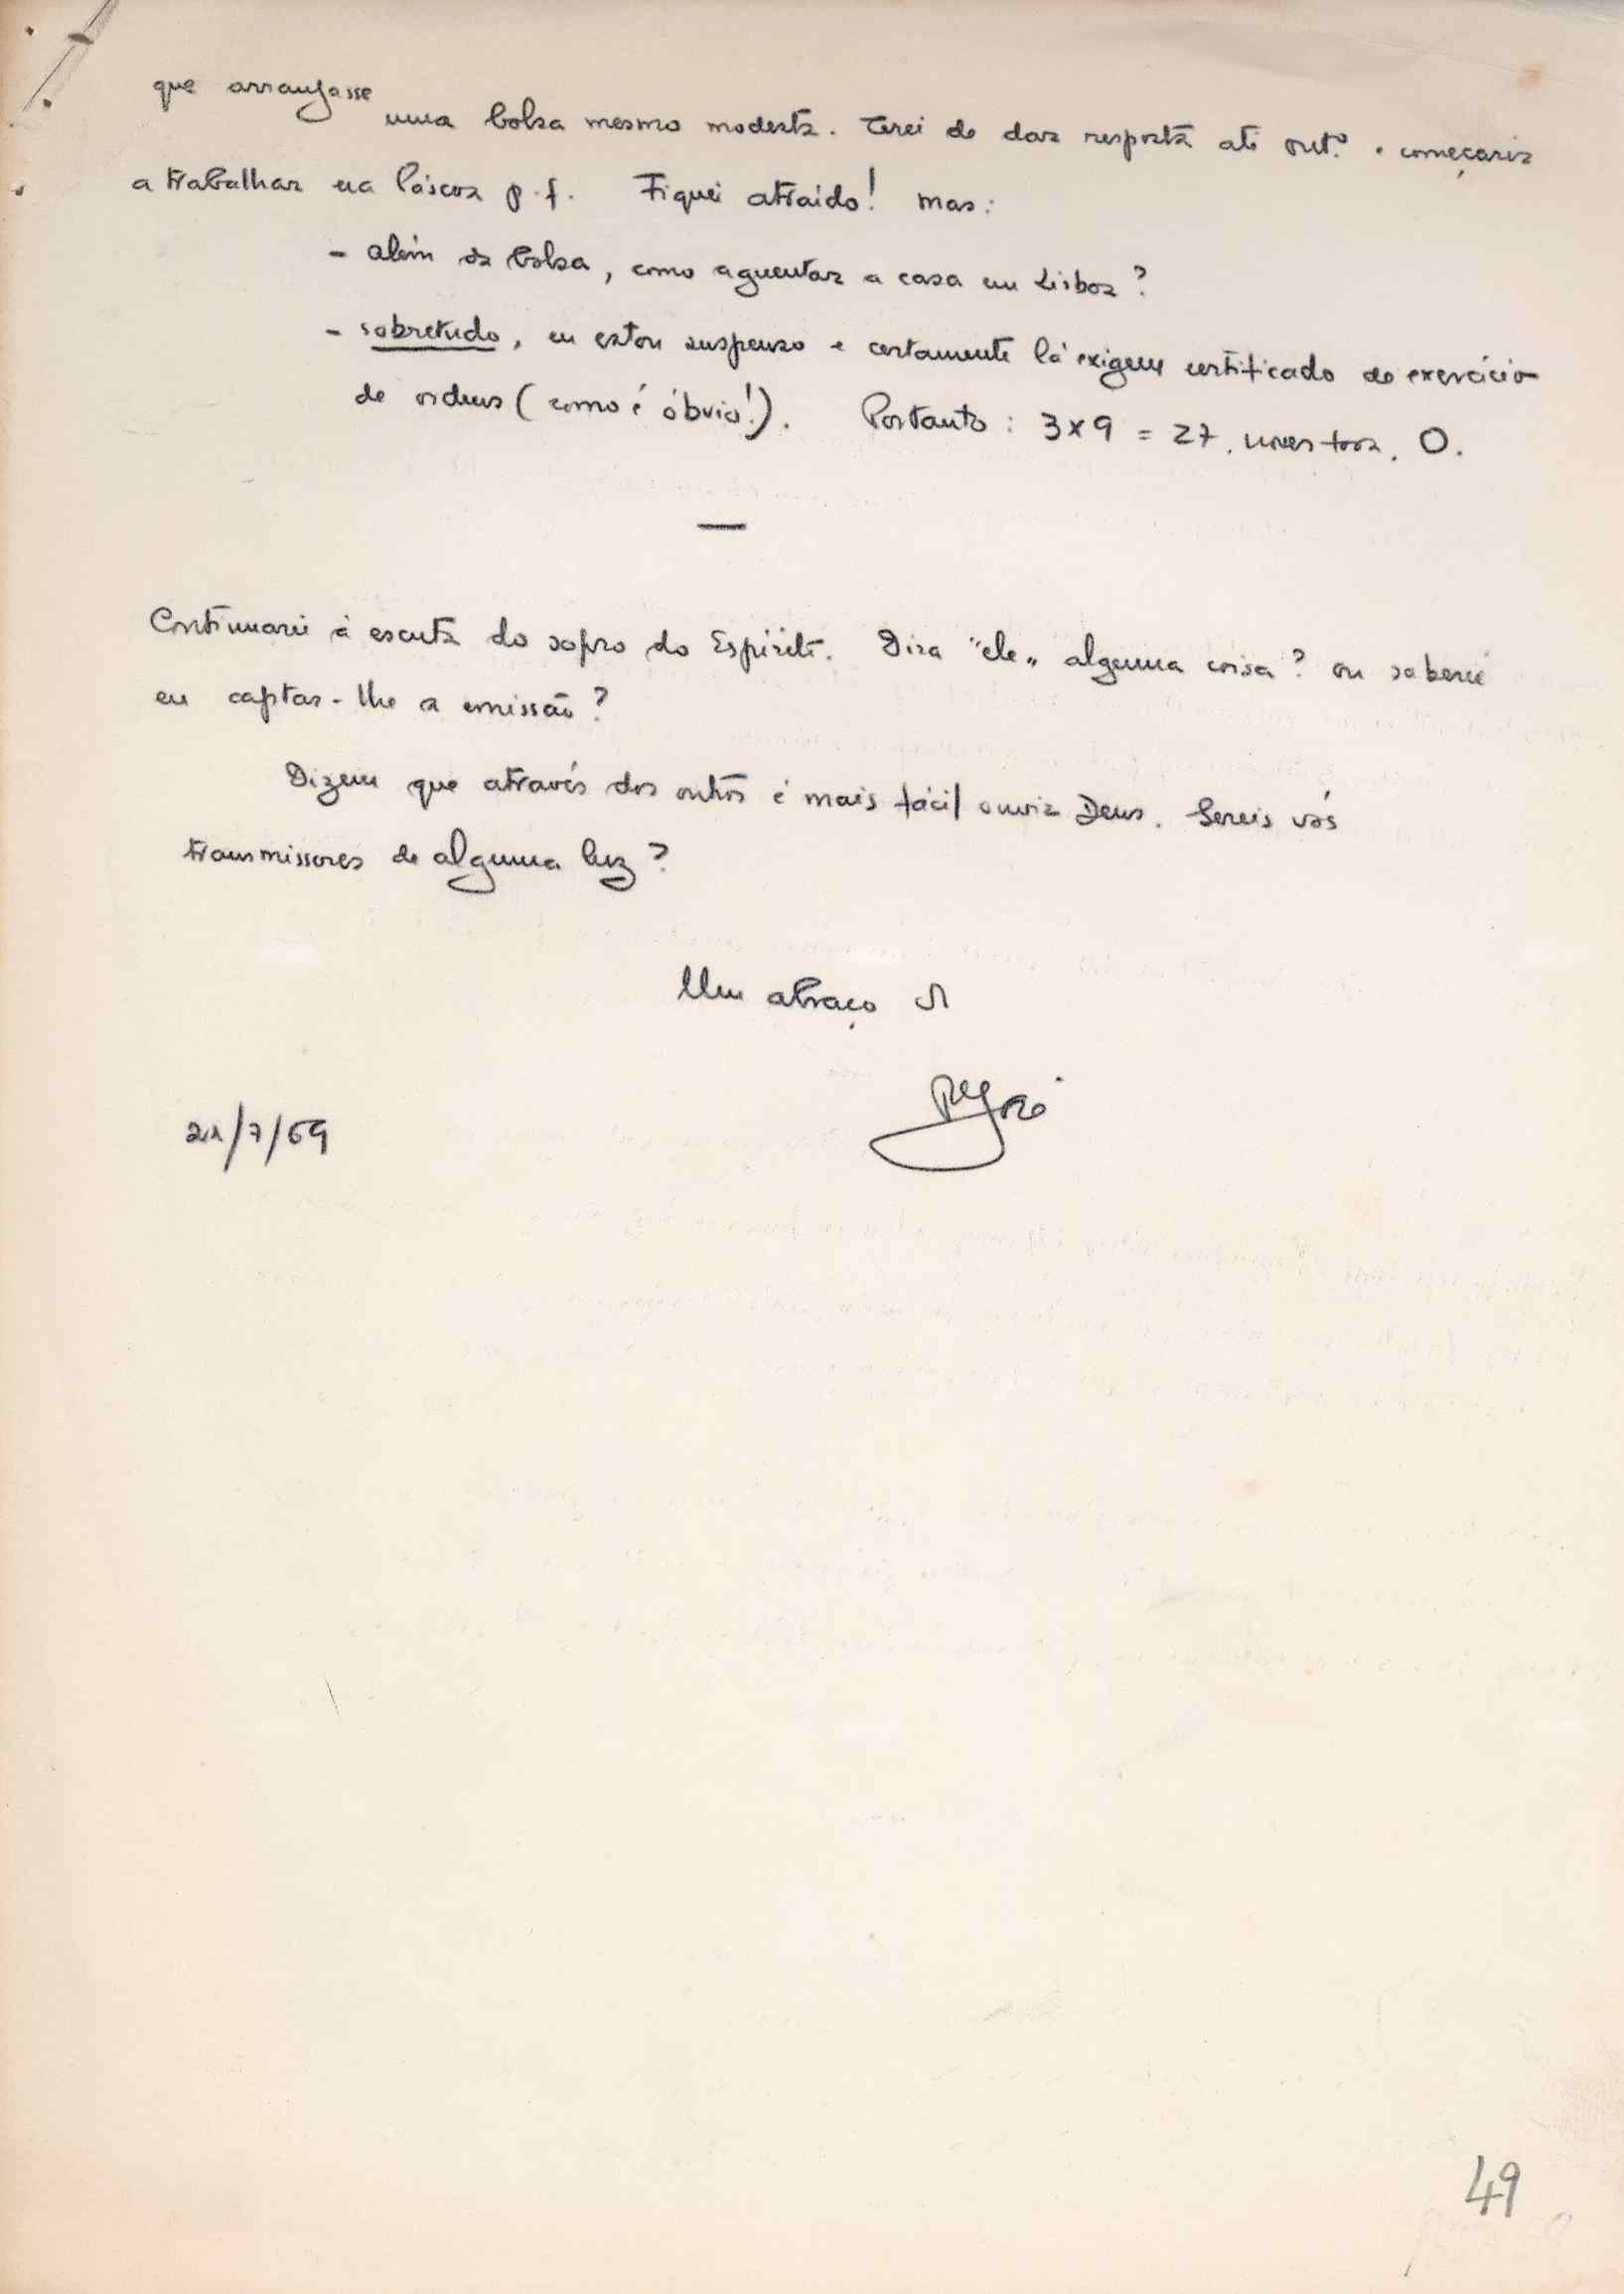 que arranjasse uma bolsa mesmo modesta. Terei de dar resposta até out.º e começaria
a trabalhar na Páscoa p.f. Fiquei atraído! Mas:
- além da bolsa, como aguentar a casa em Lisboa?
- sobretudo, eu estou suspenso e certamente lá exigem certificado de exercício
de ordens (como é óbvio!). Portanto: 3x9 = 27, noves fora, 0.
—
Continuarei à escuta do sopro do Espírito. Dirá "ele" alguma coisa? ou saberei
eu captar-lhe a emissão?
Dizem que através dos outros é mais fácil ouvir Deus. Sereis vós
transmissores de alguma luz?
Um abraço
21/7/69
49